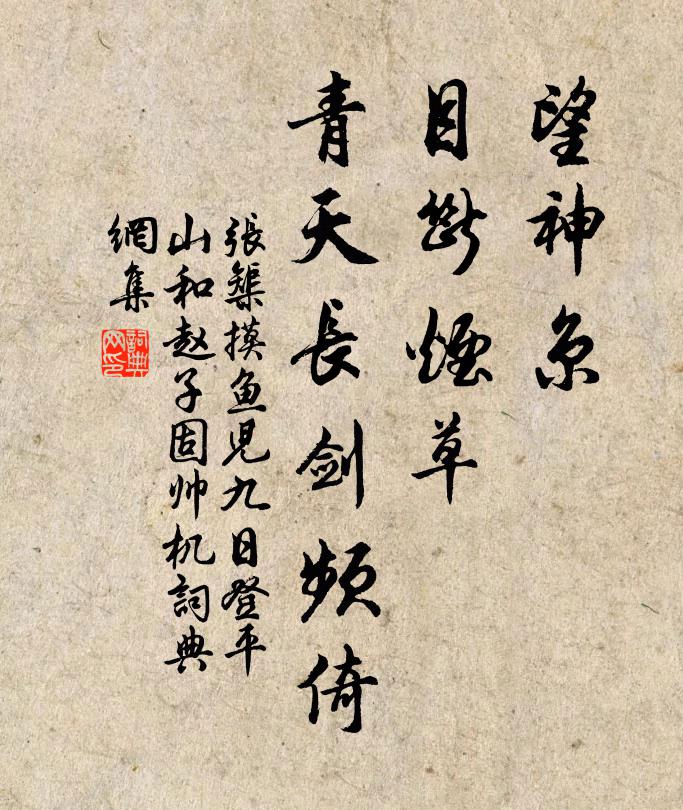 望神京
目断煙草
青天長剑頻倚
張榘摸鱼児九日登平
山和赵子固帅机詞典
網集
詞典网印